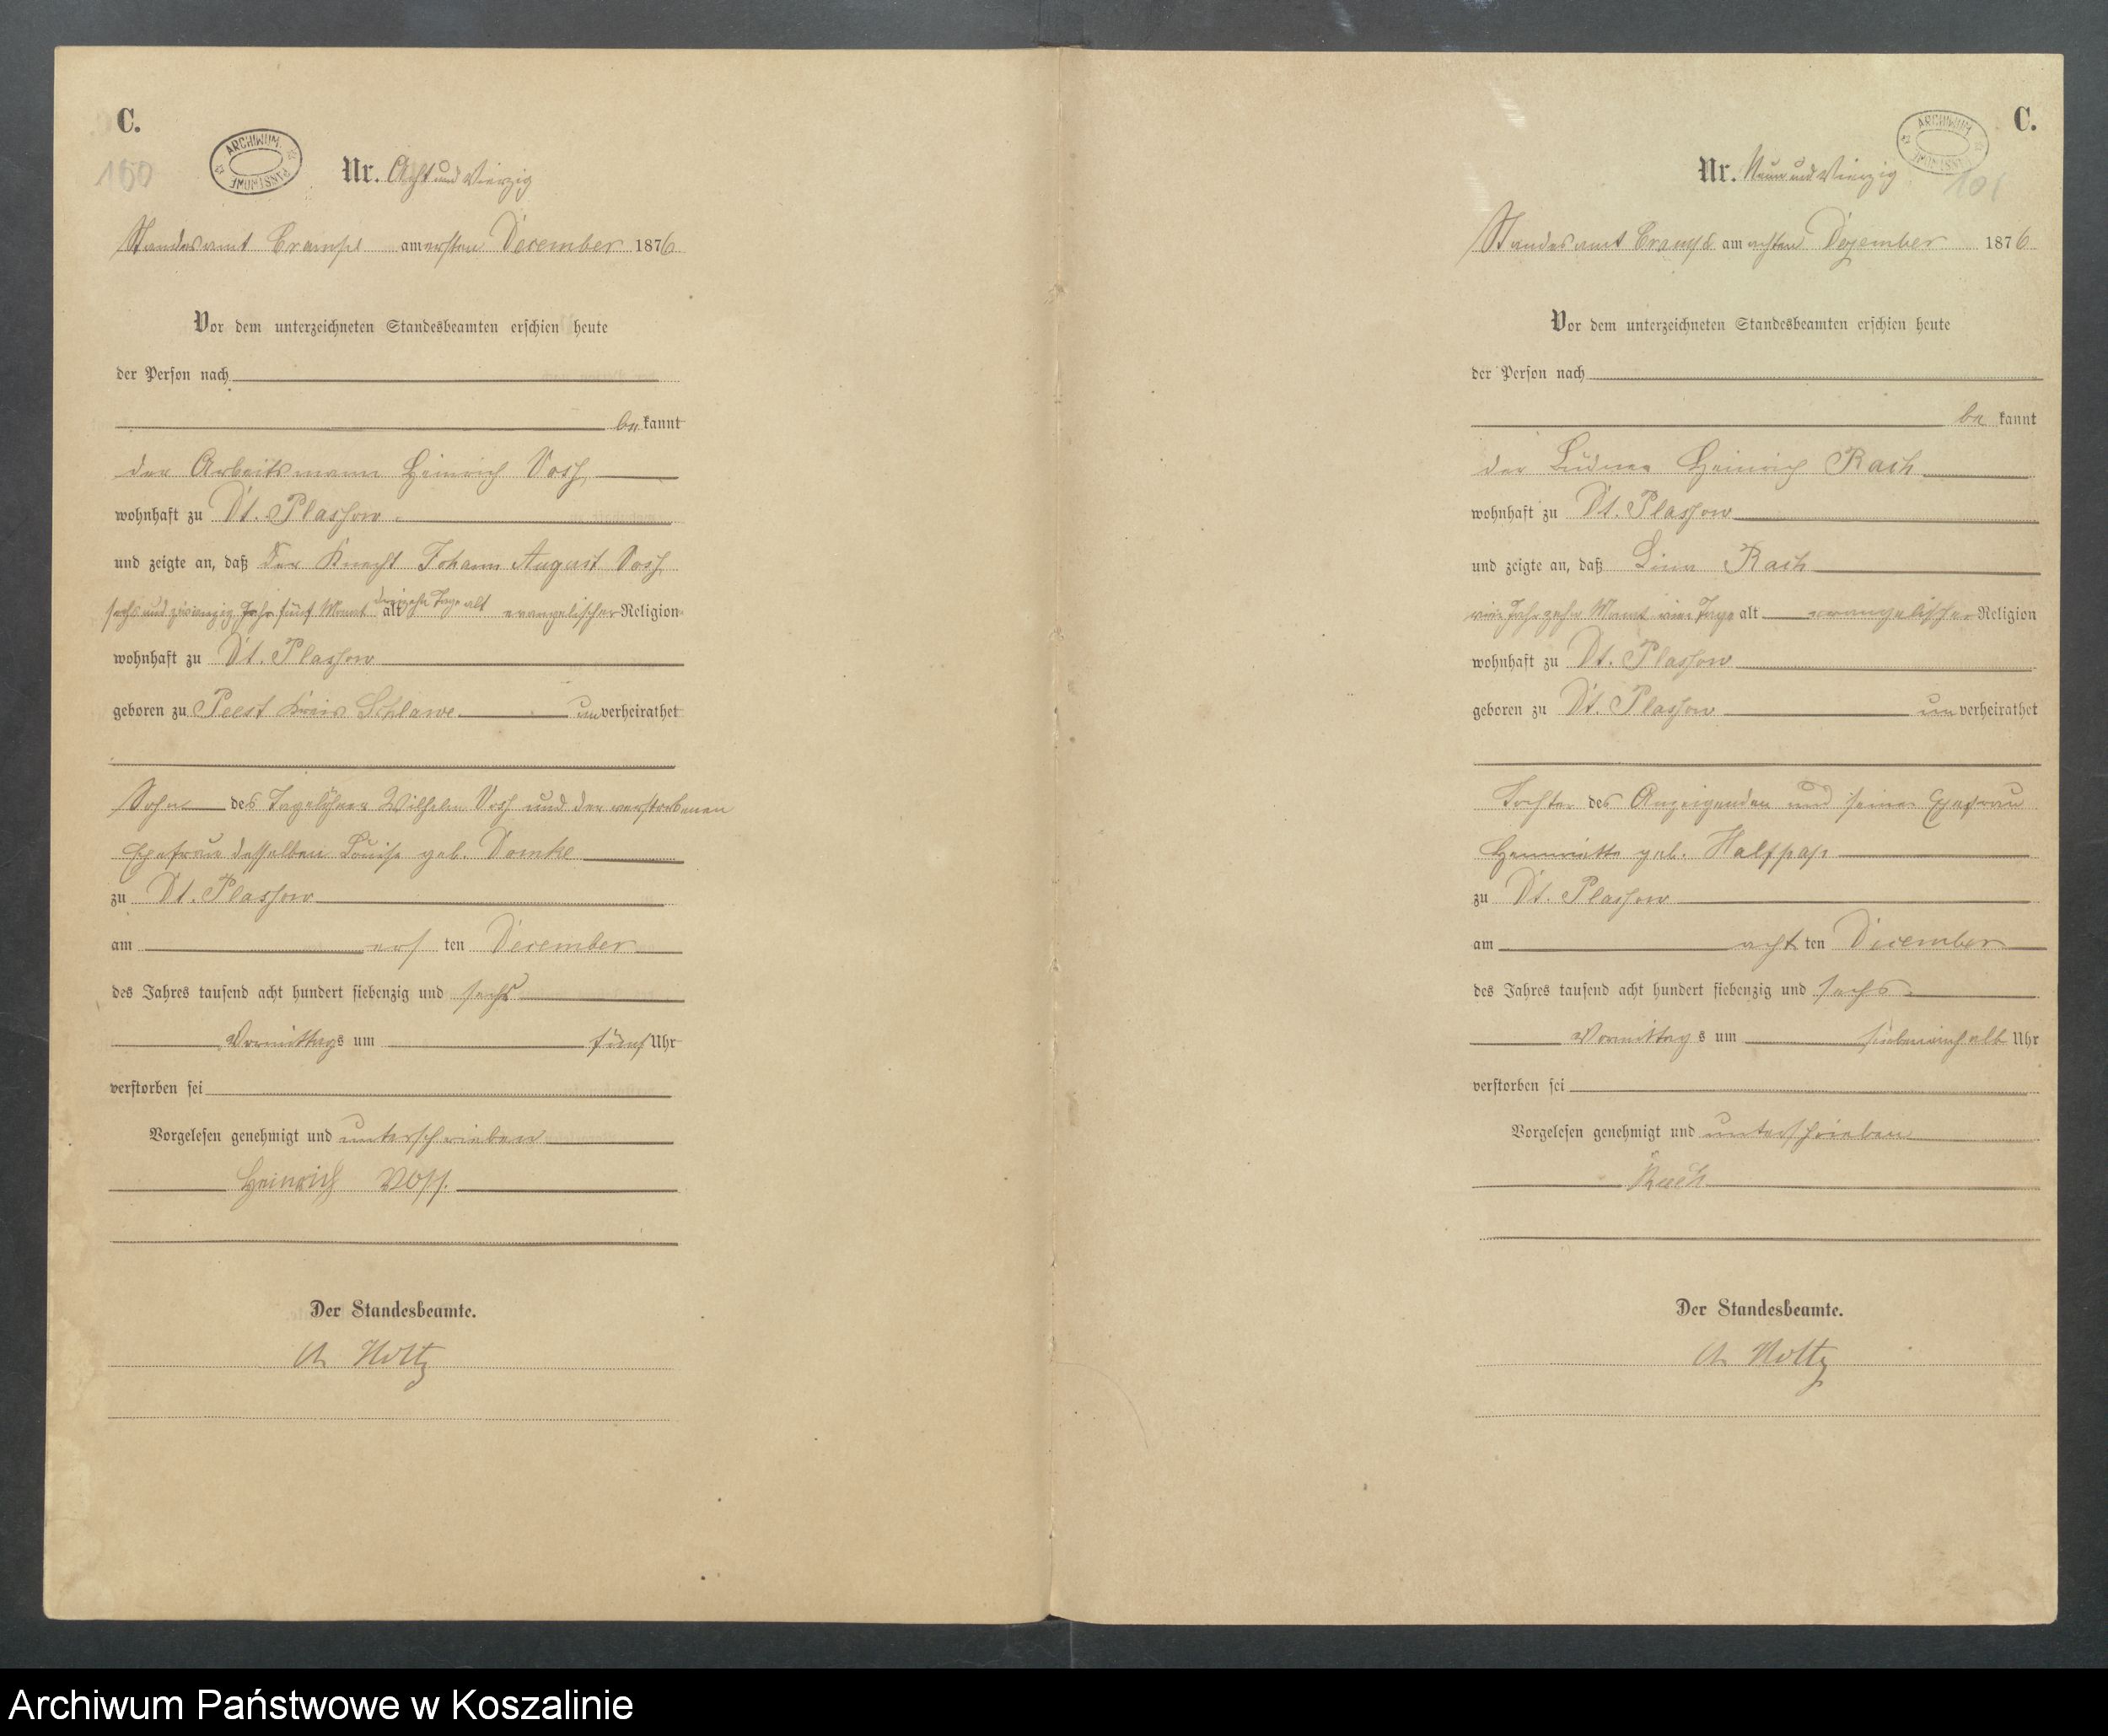 C.
ARCHIWUM PAŃSTWOWE
100
Nr. Acht und Vierzig
Standesamt Crampe am ersten December 1876
Vor dem unterzeichneten Standesbeamten erschien heute
der Person nach
be kannt
der Arbeitsmann Heinrich Voss
wohnhaft zu Dt. Plassow
und zeigte an, daß der Knecht Johann August Voss
sechs und zwanzig Jahr fünf Monat alt dreizehn Tage alt evangelischer Religion
wohnhaft zu Dt. Plassow
geboren zu Peest Kreis Schlawe unverheirathet
Sohn des Tagelöhner Wilhelm Voss und der verstorbenen
Ehefrau desselben Louise geb. Domke
zu Dt. Plassow
am ersten December
des Jahres tausend acht hundert siebenzig und sechs
Vormittags um fünf Uhr
verstorben sei
Vorgelesen genehmigt und unterschrieben
Heinrich Voss.
Der Standesbeamte.
Holtz
C.
ARCHIWUM PAŃSTWOWE
101
Nr. Neun und Vierzig
Standesamt Crampe am achten Dezember 1876
Vor dem unterzeichneten Standesbeamten erschien heute
der Person nach
be kannt
der Büdner Heinrich Rach
wohnhaft zu Dt. Plassow
und zeigte an, daß Rach
vier Jahr zehn Monat vier Tage alt evangelischer Religion
wohnhaft zu Dt. Plassow
geboren zu Dt. Plassow unverheirathet
Tochter des Anzeigenden und seiner Ehefrau
Henriette geb. Halfpap
zu Dt. Plassow
am achtten December
des Jahres tausend acht hundert siebenzig und sechs
Vormittags um siebeneinhalb Uhr
verstorben sei
Vorgelesen genehmigt und unterschrieben
Rach
Der Standesbeamte.
Holtz
Archiwum Państwowe w Koszalinie